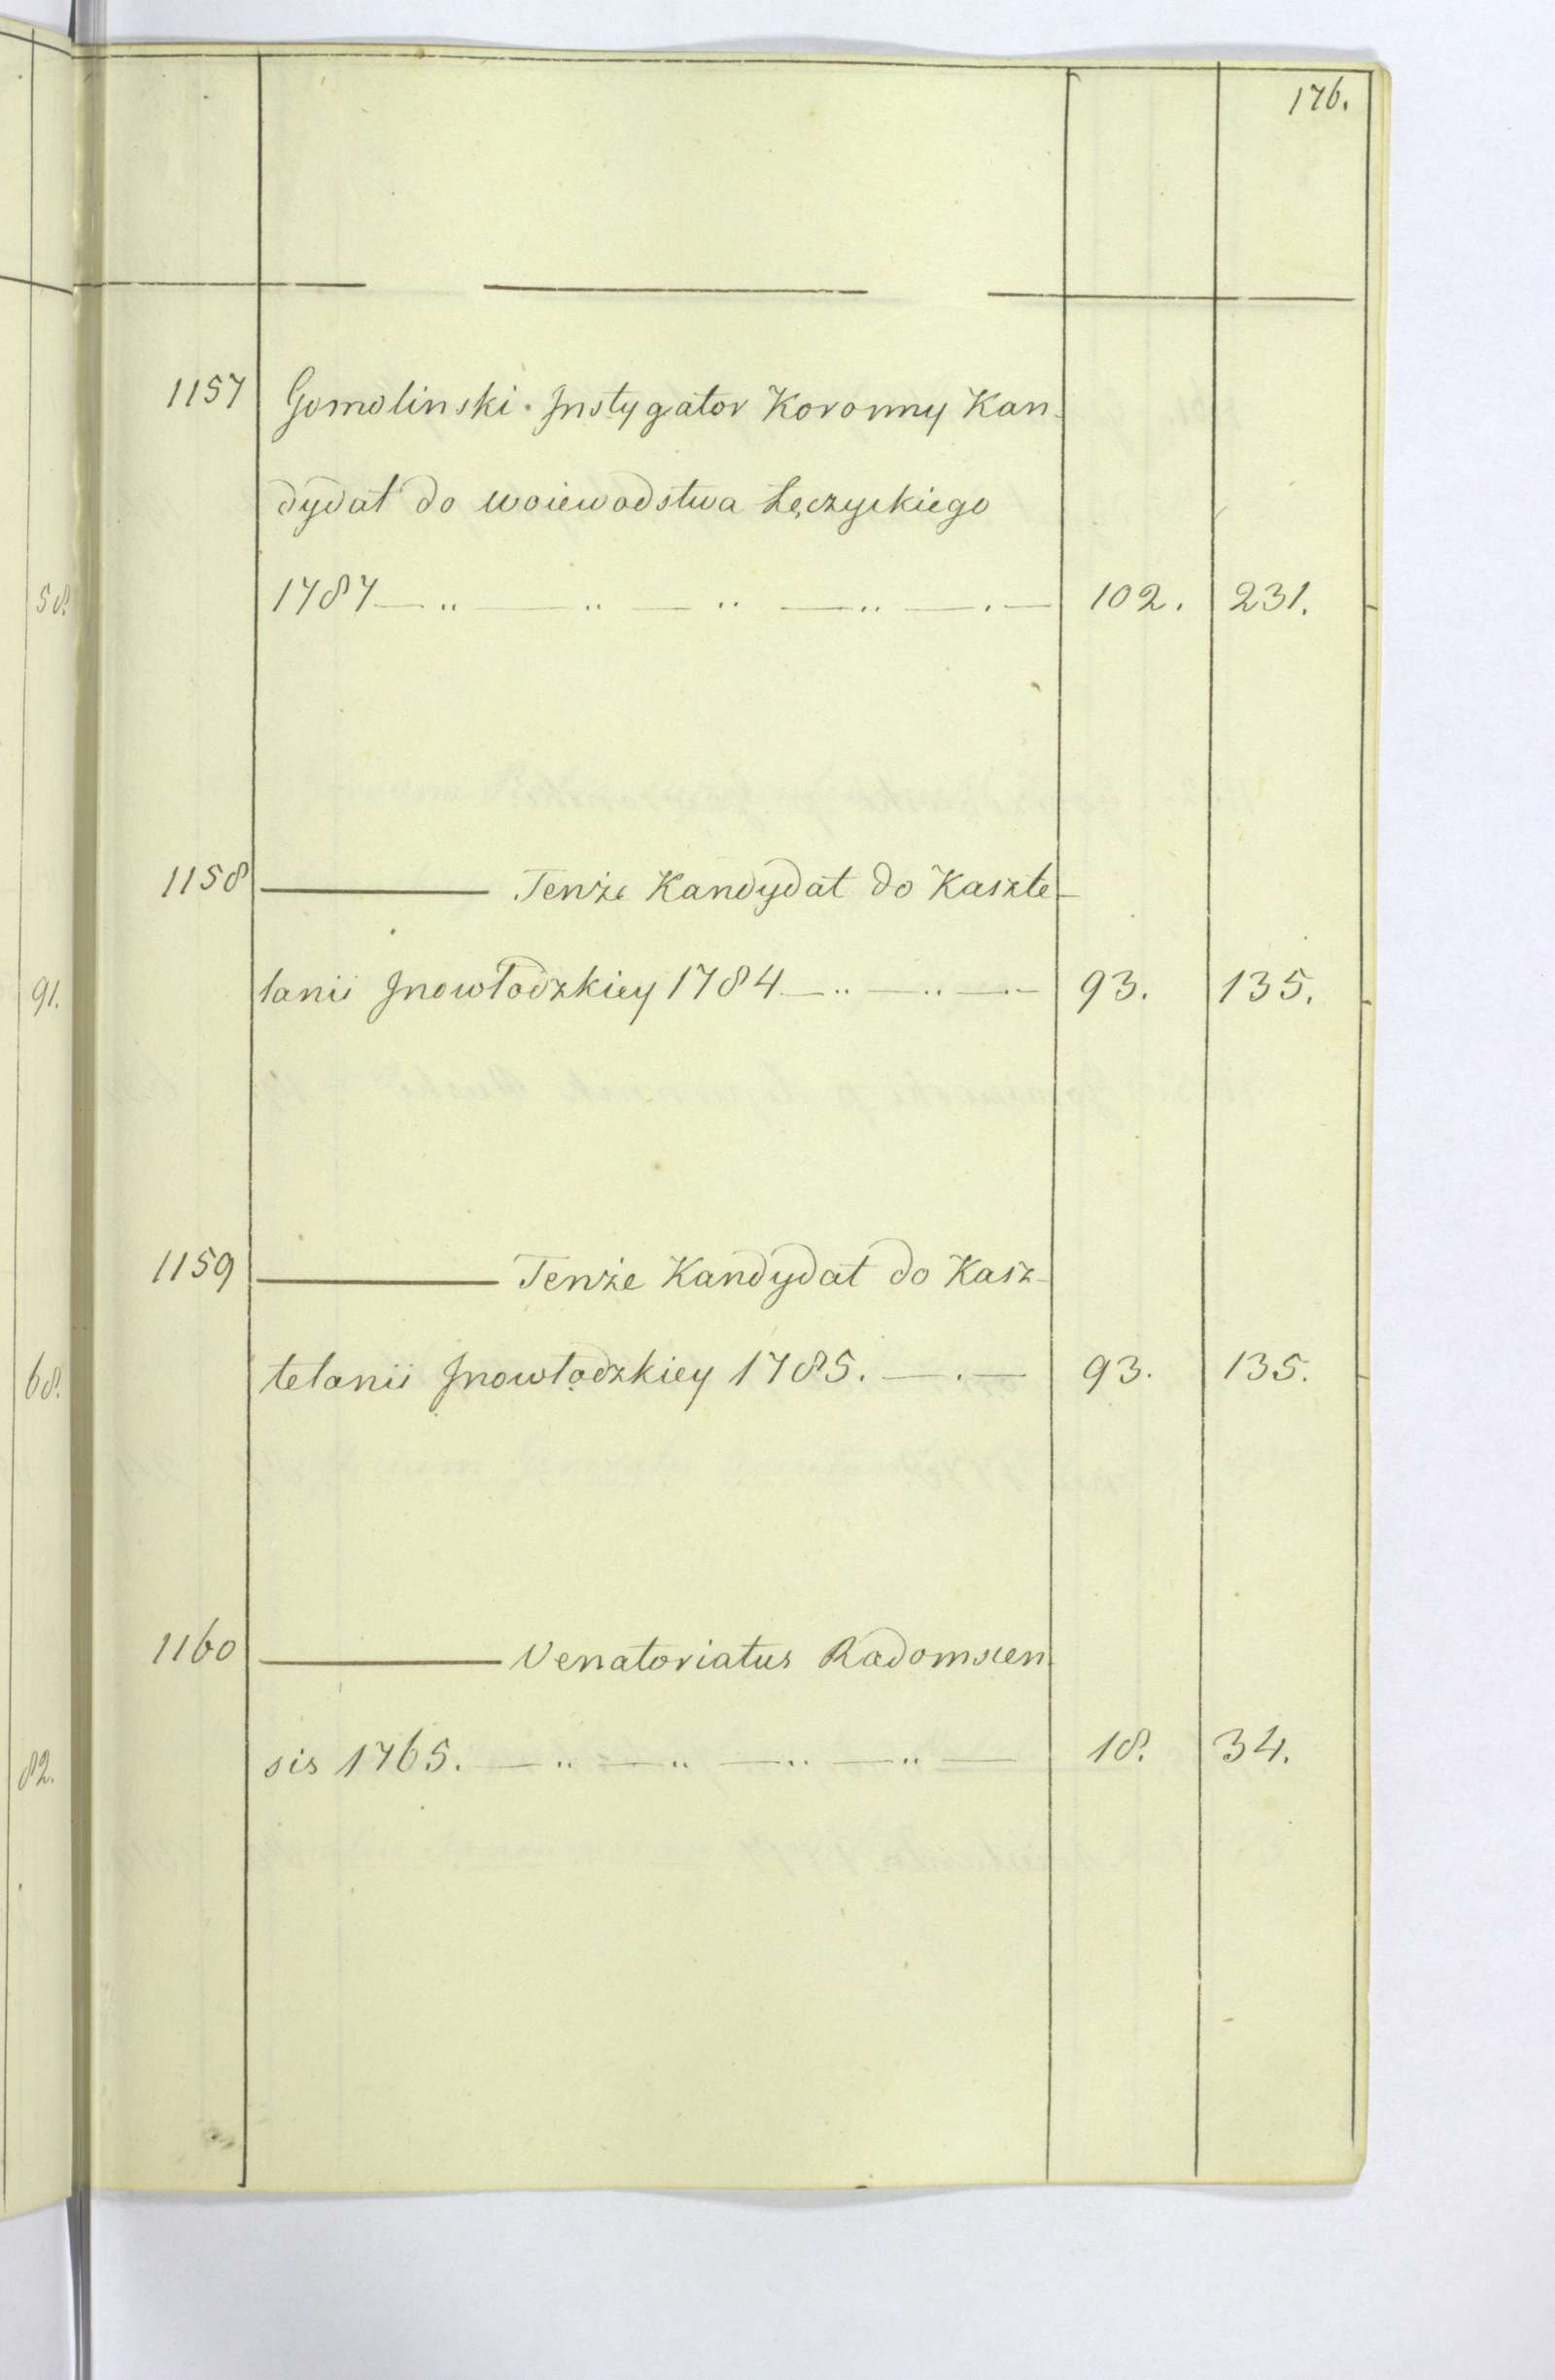 176.
1157 Gomolinski. Jnstygator Koronny Kan-
dydat do woiewodstwa Łęczyckiego
1787 102. 231.
1158 Tenże Kandydat do Kaszte-
lanii Jnowłodzkiey 1784 93. 135.
1159 Tenże Kandydat do Kasz-
telanii Jnowłodzkiey 1785. 93. 135.
1160 Venatoriatus Radomscen
sis 1765. 18. 34.
58.
91.
68.
82.